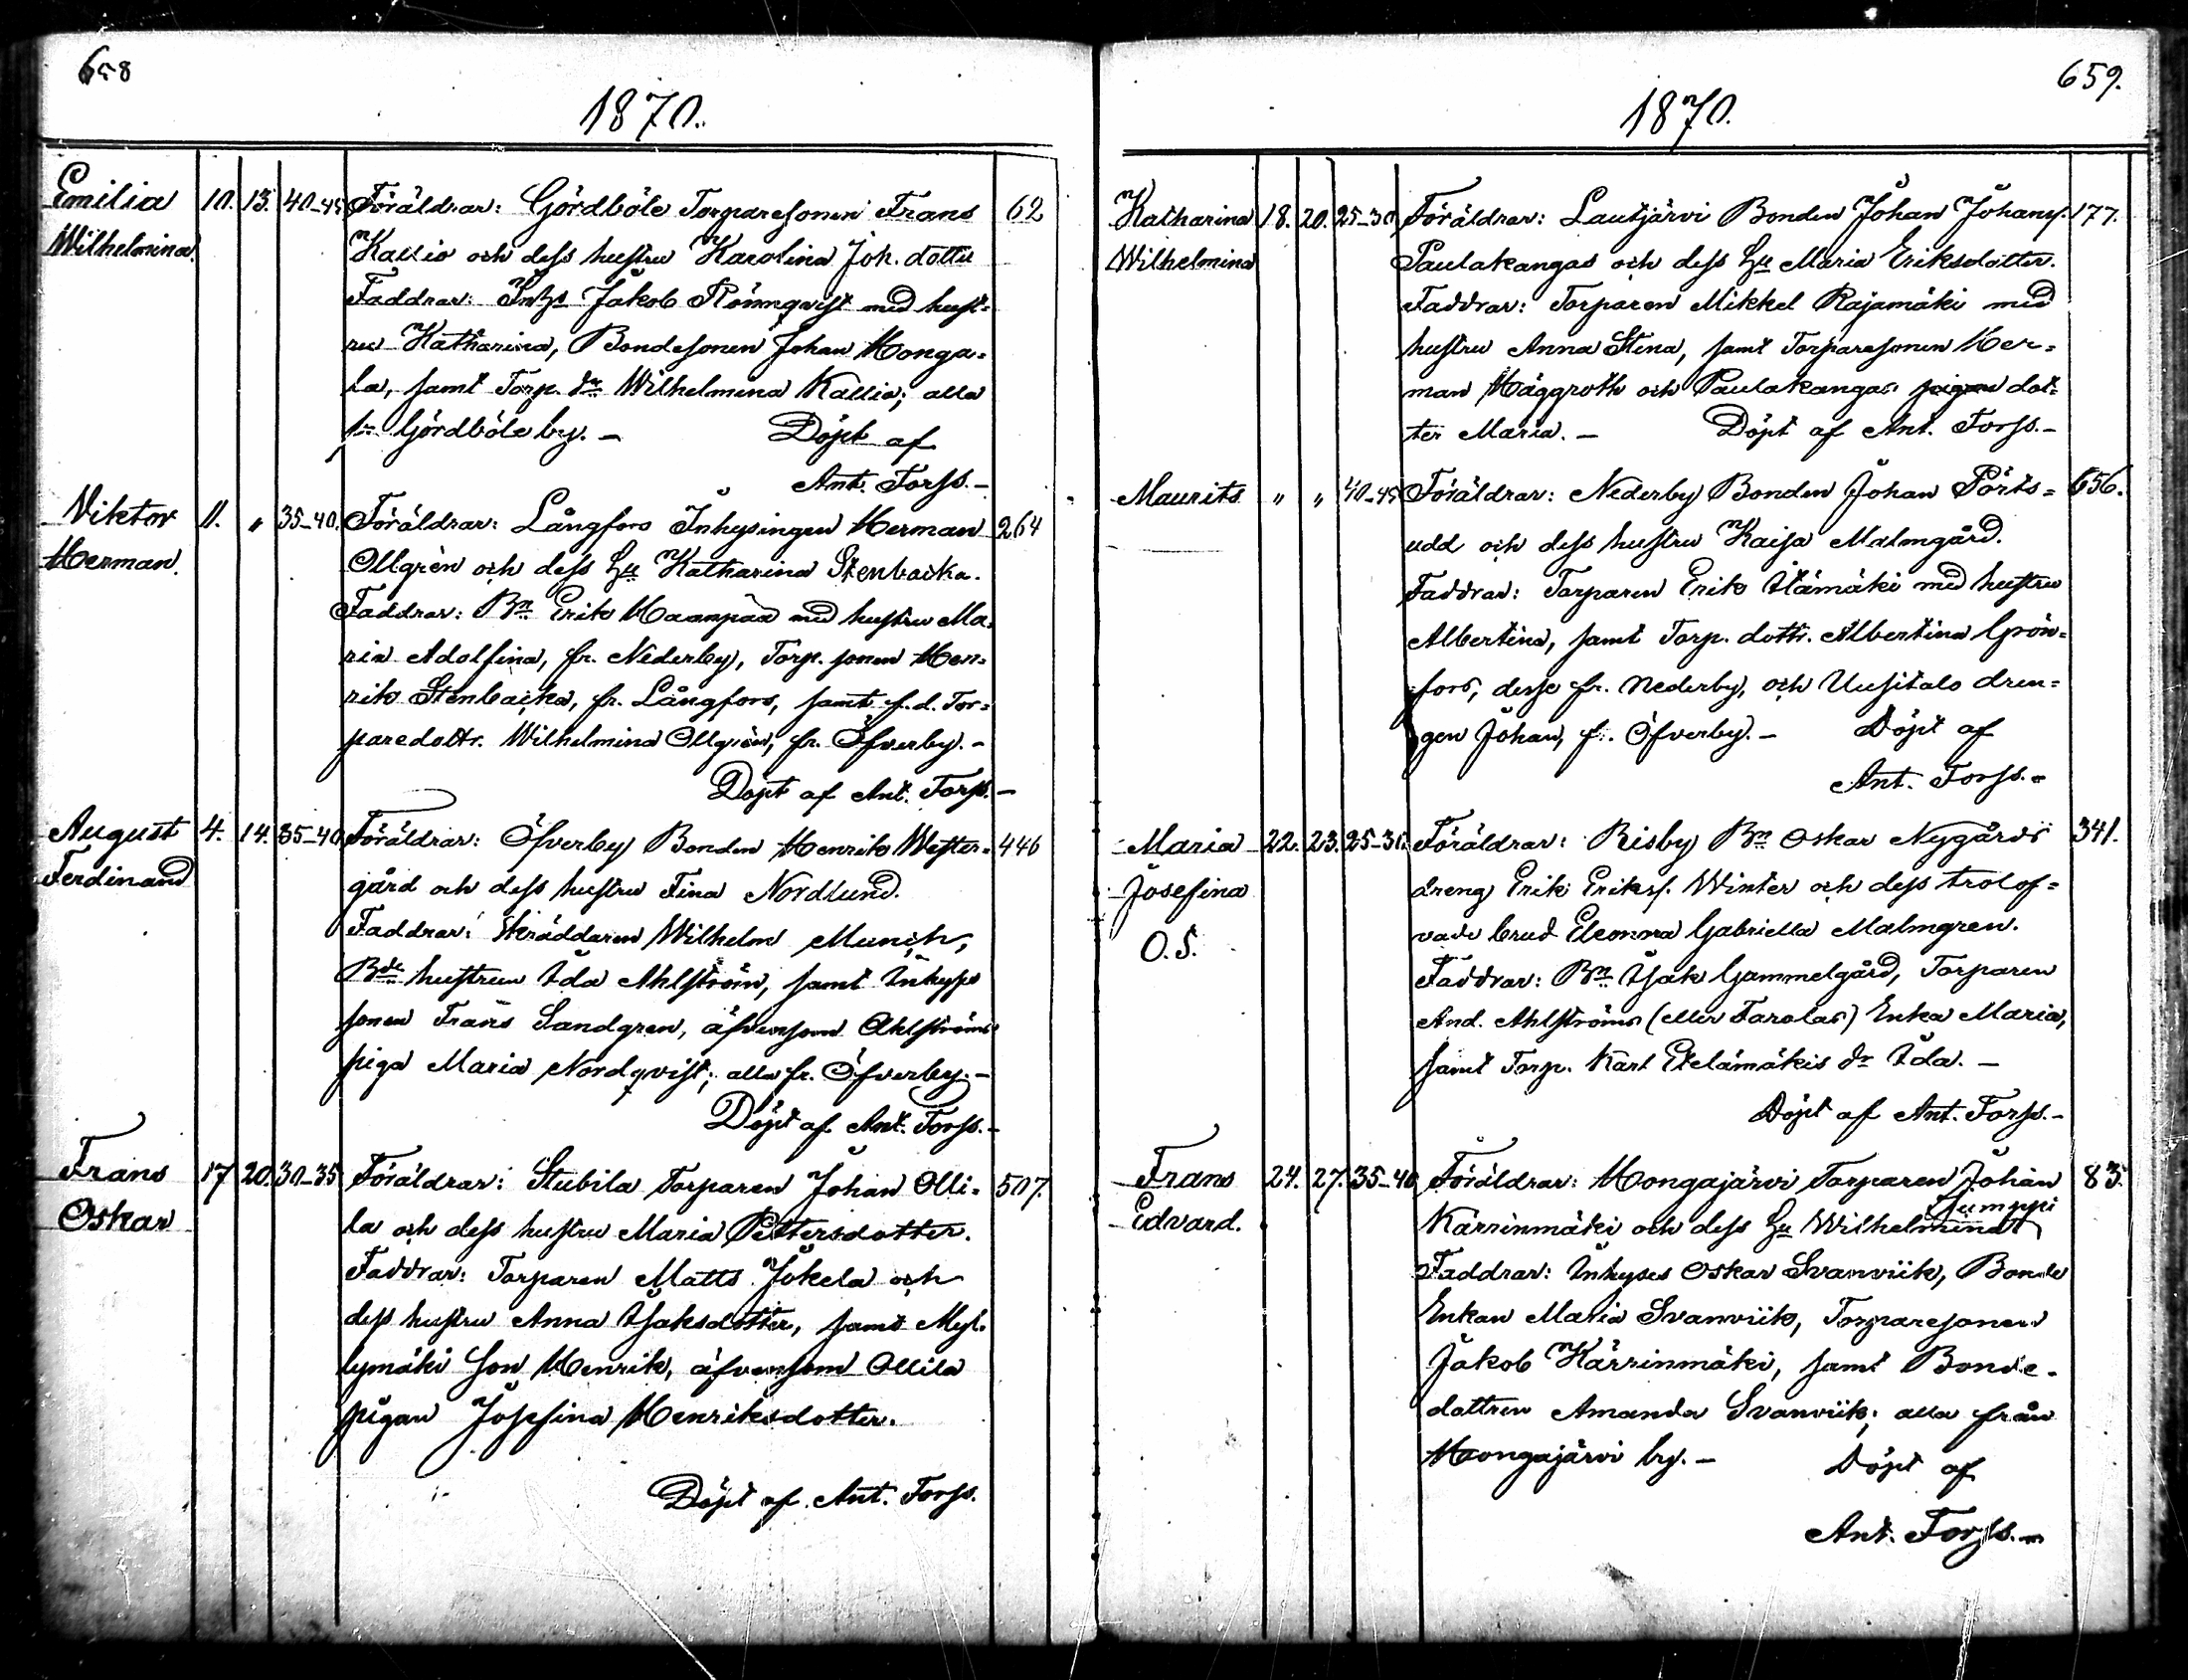 658
1870.
Emilia 10. 13. 40-45 Föräldrar: Gördböle Torparesonen Frans 62
Wilhelmina. Kallio och dess hustru Karolina Joh. dotter
Faddrar: Inhs Jakob Rönnqvist med hust-
ru Katharina, Bondesonen Johan Honga-
la, samt Torp. dr Wilhelmina Kallio; alla
fr. Gördböle by. - Döpt af
Ant. Forss.-
Viktor 11. " 35-40. Föräldrar: Långfors Inhysingen Herman 264
Herman. Ollgrén och dess Hu Katharina Stenbacka.
Faddrar: Bn Erik Haanpää med hustru Ma-
ria Adolfina, fr. Nederby, Torp. sonen Hen-
rik Stenbacka, fr. Långfors, samt f.d. Tor-
paredottr. Wilhelmina Ollgrén, fr. Öfverby.-
Döpt af Ant. Forss.-
August 4. 14. 35-40 Föräldrar: Öfverby Bonden Henrik Wester- 446
Ferdinand gård och dess hustru Fina Nordlund.
Faddrar: Skräddaren Wilhelm Munich,
Bde hustrun Ida Ahlström, samt Inhyses
sonen Frans Sandgren, äfvensom Ahlströms
piga Maria Nordqvist; alla fr. Öfverby.-
Döpt af Ant. Forss.-
Frans 17 20. 30-35 Föräldrar: Stubila Torparen Johan Olli- 507.
Oskar la och dess hustru Maria Pettersdotter.
Faddrar: Torparen Matts Jokela och
dess hustru Anna Isaksdotter, samt Myl-
lymäki son Henrik, äfvensom Ollila
pigan Josefina Henriksdotter.
Döpt af Ant. Forss.
659.
1870.
Katharina 18. 20. 25-30 Föräldrar: Lautjärvi Bonden Johan Johanss. 177.
Wilhelmina Paulakangas och dess Hu Maria Eriksdotter.
Faddrar: Torparen Mikkel Rajamäki med
hustru Anna Stina, samt Torparesonen Her-
man Häggroth och Paulakangas pigan dot-
ter Maria. - Döpt af Ant. Forss.-
Maurits " " 40-45 Föräldrar: Nederby Bonden Johan Pörts- 656.
udd och dess hustru Kaisa Malmgård.
Faddrar: Torparen Erik Itämäki med hustru
Albertina, samt Torp. dottr. Albertina Grön-
fors, desse fr. Nederby, och Uusitalo dren-
gen Johan, fr. Öfverby. - Döpt af
Ant. Forss.-
Maria 22. 23. 25-30. Föräldrar: Risby Bn Oskar Nygårds 341.
Josefina dreng Erik Erikss. Winter och dess trolof-
O.S. vade brud Eleonora Gabriella Malmgren.
Faddrar: Bn Isak Gammelgård, Torparen
And. Ahlströms (eller Farolas) Enka Maria,
samt Torp. Karl Etelämäkis dr Ida. -
Döpt af Ant. Forss.-
Frans 24. 27. 35-40 Föräldrar: Hongajärvi Torparen Johan 83.
Edvard. Kärrinmäki och dess Hu Wilhelmina Jumppi
Faddrar: Inhyses Oskar Svanviik, Bonde
Enkan Maria Svanviik, Torparesonen
Jakob Kärrinmäki, samt Bonde-
dottren Amanda Svanviik; alla från
Hongajärvi by. - Döpt af
Ant. Forss.-